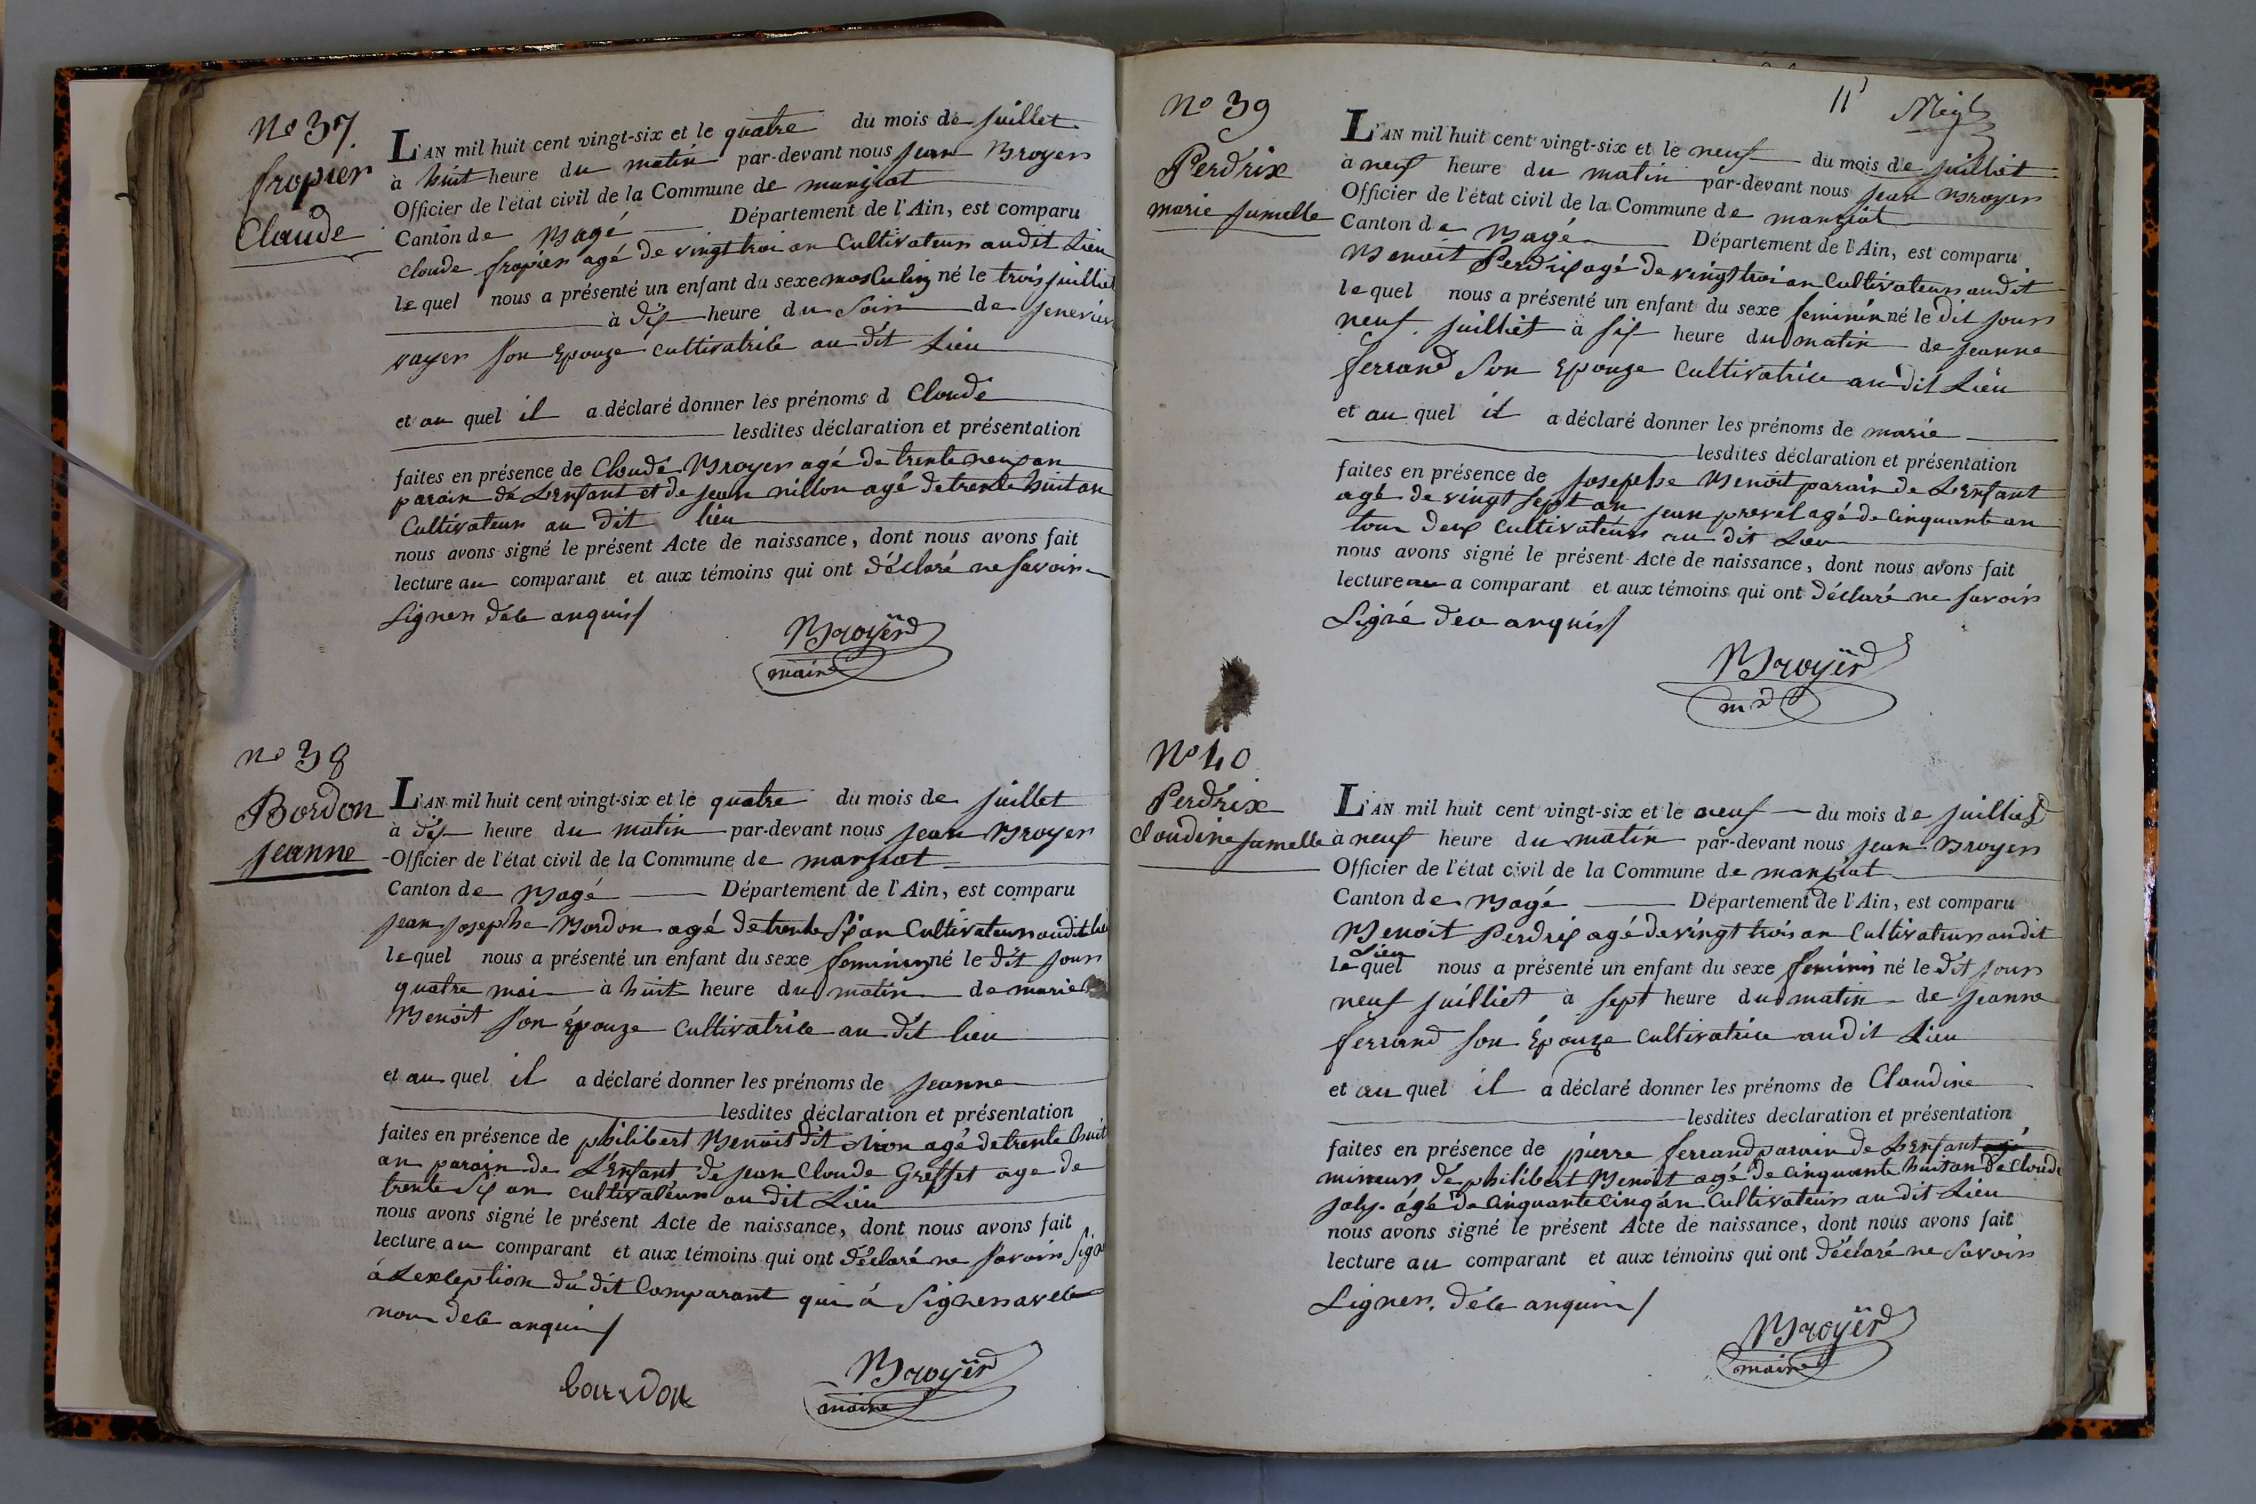 No 37
fropier
Claude
L'AN mil huit cent vingt-six et le quatre du mois de juillet
à huit heure du matin par-devant nous jean Broyer
Officier de l'état civil de la Commune de manziat
Canton de Bagé Département de l'Ain, est comparu
cloude fropier agé de vingt troi an Cultivateur audit Lieu
lequel nous a présenté un enfant du sexe masculin né le trois juilliet
à dix heure du soir de jenevieve
voyer son Epouze cultivatrice au dit Lieu
et au quel il a déclaré donner les prénoms d Cloude
lesdites déclaration et présentation
faites en présence de Cloude Broyer agé de trente neuf an
parain de L'enfant et de jean nillon agé de trente huit an
Cultivateur au dit lieu
nous avons signé le présent Acte de naissance, dont nous avons fait
lecture au comparant et aux témoins qui ont déclaré ne savoir
signer de ce anquis
Broyer
maire
no 38
Bordon
jeanne
L'AN mil huit cent vingt-six et le quatre du mois de juillet
à dix heure du matin par-devant nous jean Broyer
Officier de l'état civil de la Commune de manziat
Canton de Bagé Département de l'Ain, est comparu
jean josephe Bordon agé de trente six an Cultivateur audit lieu
lequel nous a présenté un enfant du sexe feminin né le dit jour
quatre mai à huit heure du matin de marie
Benoit son épouze cultivatrice au dit lieu
et au quel il a déclaré donner les prénoms de jeanne
lesdites déclaration et présentation
faites en présence de philibert Benoit dit agé de trente huit
an parain de L'enfant de jean Cloude Greffet age de
trente six an cultivateur au dit Lieu
nous avons signé le présent Acte de naissance, dont nous avons fait
lecture au comparant et aux témoins qui ont déclaré ne savoir signe
à L'exception du dit Comparant qui a signer avec
nou de ce anquis
bourdon
Broyer
maire
11
No 39
Perdrix
marie jumelle
L'AN mil huit cent vingt-six et le neuf du mois de juilliet
à neuf heure du matin par-devant nous jean Broyer
Officier de l'état civil de la Commune de manziat
Canton de Bagé Département de l'Ain, est comparu
Benoit Perdrix agé de vingt troi an Cultivateur audit
lequel nous a présenté un enfant du sexe feminin né le dit jour
neuf juilliet à six heure du matin de jeanne
ferrand son Epouze cultivatrice au dit Lieu
et au quel il a déclaré donner les prénoms de marie
lesdites déclaration et présentation
faites en présence de josephe Benoit parain de L'enfant
agé de vingt sept an jean prevel agé de cinquante an
tou deux cultivateur au dit Lieu
nous avons signé le présent Acte de naissance, dont nous avons fait
lecture au a comparant et aux témoins qui ont déclaré ne savoir
signé de ce anquis
Broyer
No 40
Perdrix
Cloudine jumelle
L'AN mil huit cent vingt-six et le neuf du mois de juilliet
à neuf heure du matin par-devant nous jean Broyer
Officier de l'état civil de la Commune de manziat
Canton de Bagé Département de l'Ain, est comparu
Benoit Perdrix agé de vingt trois an Cultivateur audit
Lieu
lequel nous a présenté un enfant du sexe feminin né le dit jour
neuf juilliet à sept heure du matin de jeanne
ferrand son Epouze cultivatrice audit Lieu
et au quel il a déclaré donner les prénoms de Claudine
lesdites déclaration et présentation
faites en présence de pierre ferrand parain de L'enfant agé
mineur de philibert Benoit agé de cinquante huit an de Cloude
joly agé de cinquante cinq an Cultivateur au dit Lieu
nous avons signé le présent Acte de naissance, dont nous avons fait
lecture au comparant et aux témoins qui ont déclaré ne savoir
signer de ce anquis
Broyer
maire